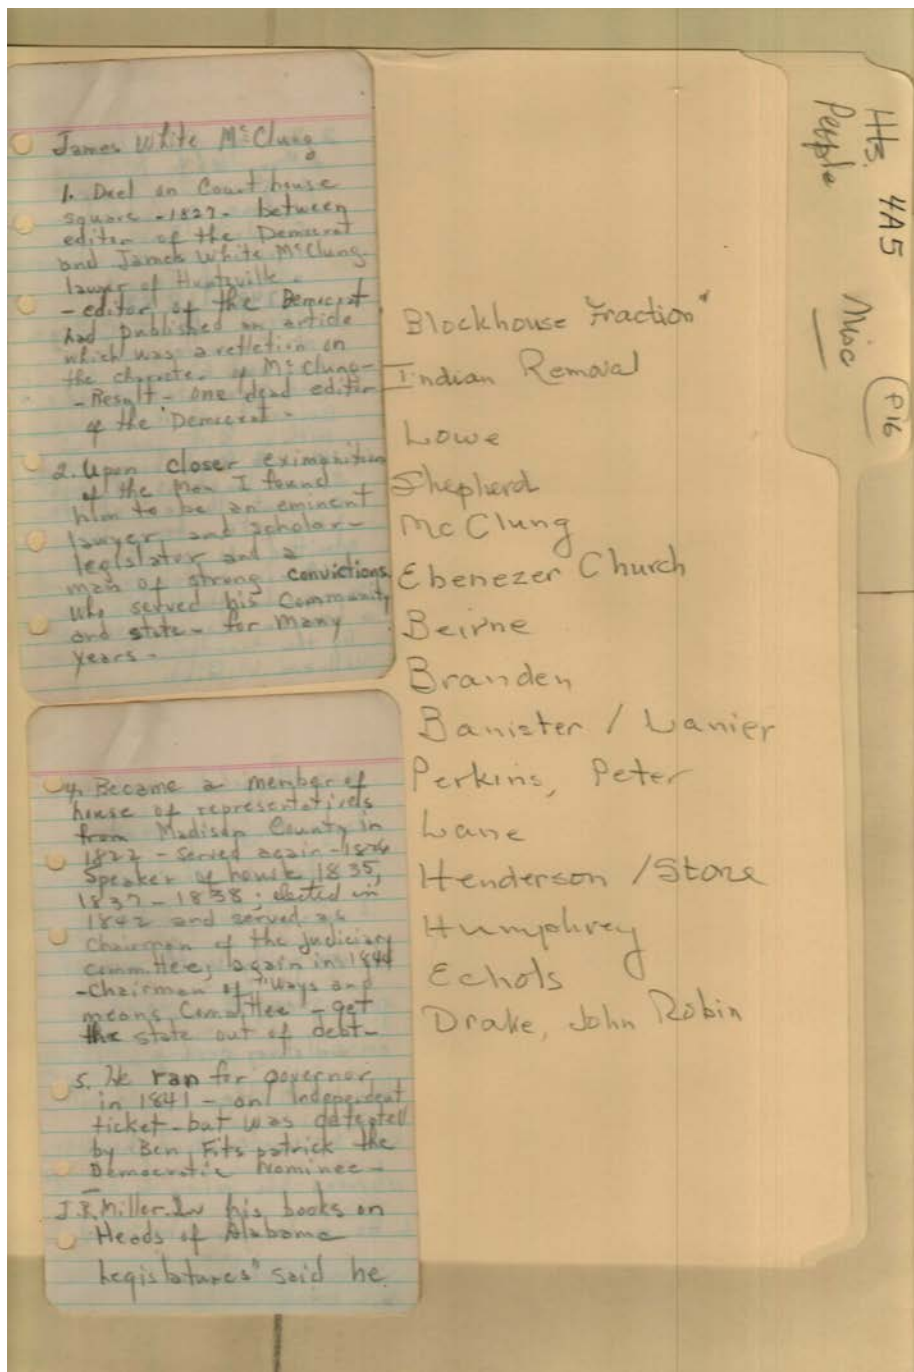 James White McClung
1. Duel on Courthouse
square - 1827 - between
editor of the Democrat
and James White McClung
lawyer of Huntsville -
- editor of the Democrat
had published an article
which was a refletion on
the character of McClung -
- Result - one dead editor
of the "Democrat -
2. Upon closer eximanition
of the Man I found
him to be an eminent
lawyer, and scholar -
legislator and a
man of strong convictions
who served his Community
and state - for many
years -
4. Became a member of
house of representatives
from Madison County in
1822 - served again - 1826
Speaker of house 1835,
1837 - 1838; elected in
1842 and served as
Chairman of the judiciary
committee; again in 1844
- Chairman of "Ways and
means Committee - got
the state out of debt -
5. He ran for governor
in 1841 - on Independent
ticket - but was defeated
by Ben, Fitspatrick the
Democratic Nominee -
J.R. Miller. In his books on
Heads of Alabama
Legislatures" said he
Blockhouse Fraction"
Indian Removal
Lowe
Shepherd
McClung
Ebenezer Church
Beirne
Branden
Banister / Lanier
Perkins, Peter
Lane
Henderson / Stone
Humphrey
Echols
Drake, John Robin
Hts. 4A5 Misc P16
People